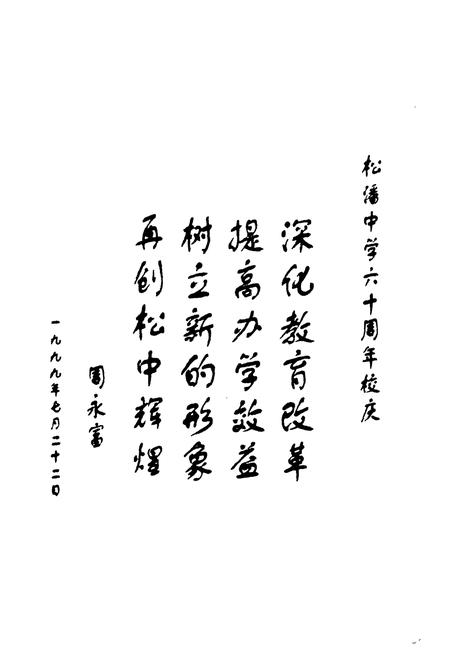 松潘中学六十周年校庆
深化教育改革
提高办学效益
树立新的形象
再创松中辉煌
周永富
一九九九年七月二十二日